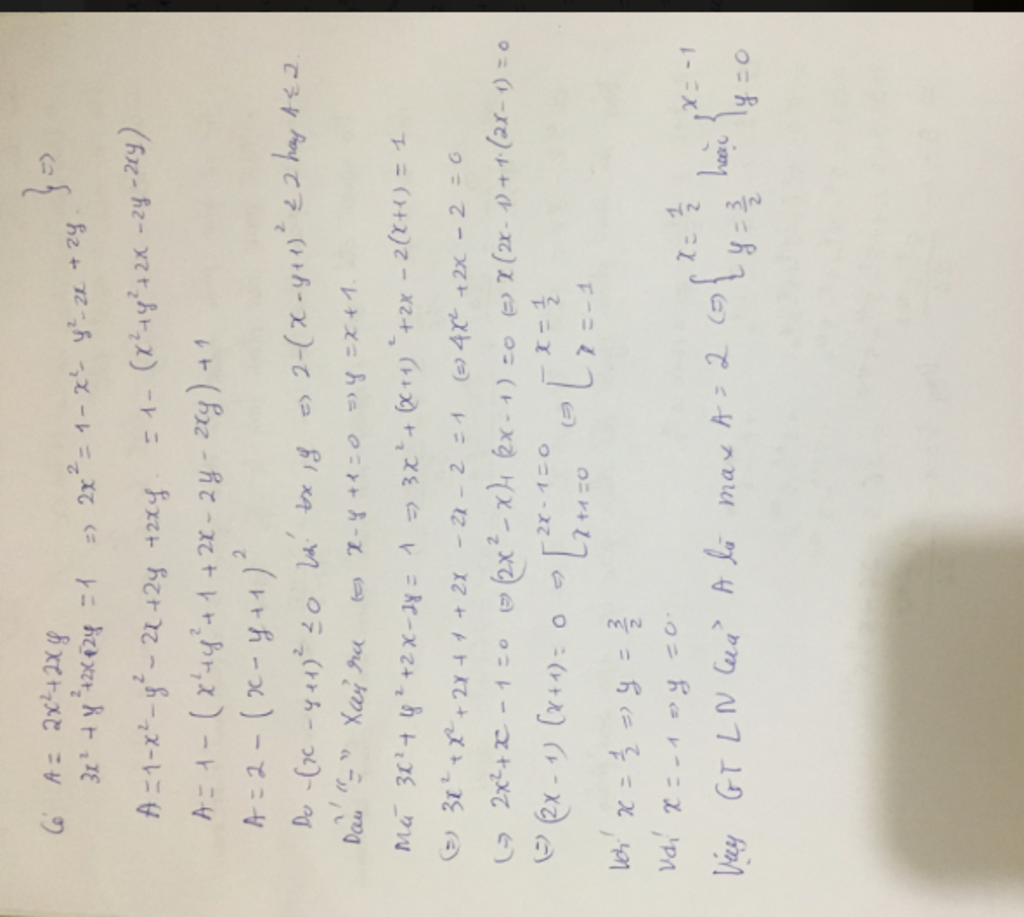 Có A = 2x²+2xy
3x²+y²+2x-2y=1 } => 
=> 2x²=1-x²-y²-2x+2y.
A=1-x²-y²-2x+2y+2xy. = 1-(x²+y²+2x-2y-2xy)
A=1-(x²+y²+1+2x-2y-2xy)+1
A=2-(x-y+1)²
Do -(x-y+1)² ≤0 Với ∀x,y => 2-(x-y+1)² ≤ 2 hay A≤2.
Dấu "=" Xảy ra <=> x-y+1=0 => y=x+1.
Mà 3x²+y²+2x-2y=1 => 3x²+(x+1)²+2x-2(x+1)=1
<=> 3x²+x²+2x+1+2x-2x-2=1 <=> 4x²+2x-2=0
<=> 2x²+x-1=0 <=> (2x²-x)+(2x-1)=0 <=> x(2x-1)+1.(2x-1)=0
<=> (2x-1)(x+1)=0 => [2x-1=0 x+1=0 <=> [x=1/2 x=-1
Với x=1/2 => y=3/2
Với x=-1 => y=0.
Vậy GTLN của A là max A=2 <=> {x=1/2 y=3/2 hoặc {x=-1 y=0